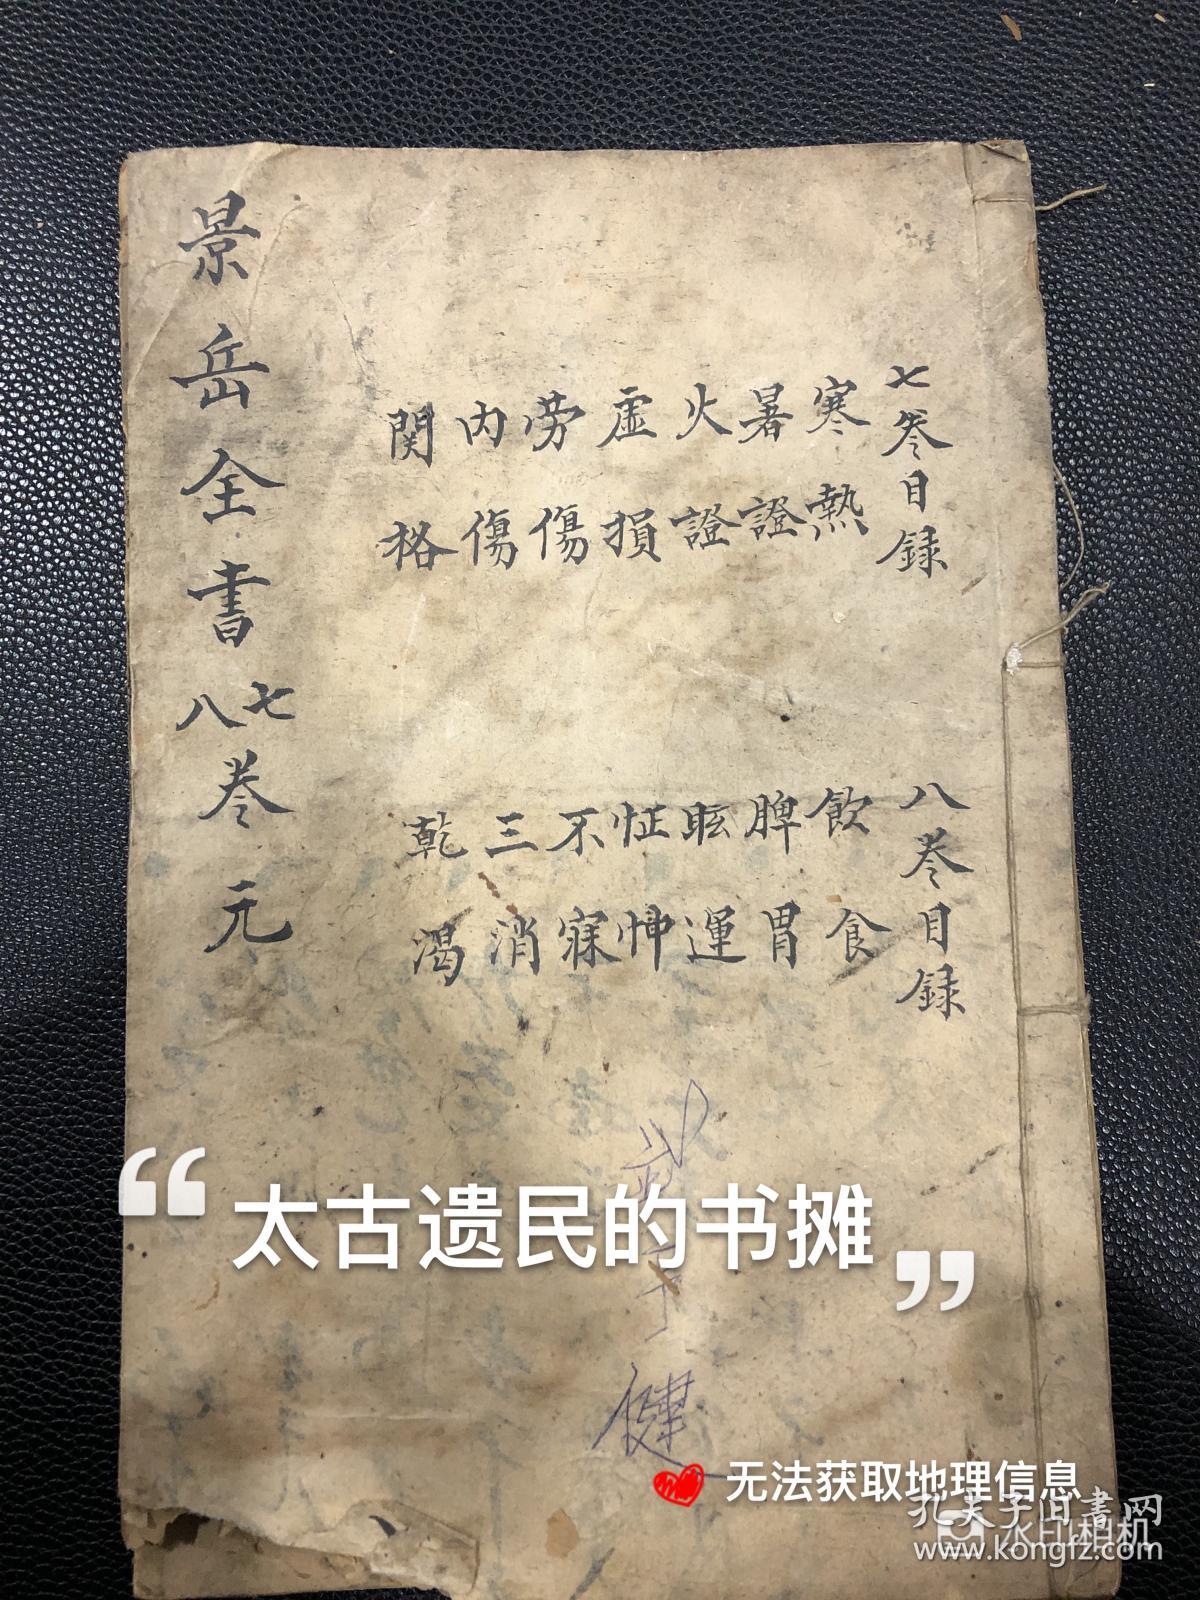 七卷目録
寒熱
暑證
火證
虚損
劳傷
内傷
関格
八卷目録
飲食
脾胃
眩運
怔忡
不寐
三消
乾渴
景岳全書七八卷 元
健
“太古遗民的书摊”
无法获取地理信息
孔夫子旧書网
水印相机
www.kongfz.com